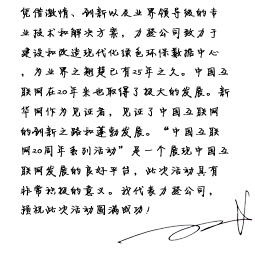 凭借激情、创新以及业界领导级的专
业技术和解决方案，力登公司致力于
建设和改造现代化绿色环保数据中心
，为业界之翘楚已有25年之久。中国互
联网在20年来也取得了极大的发展。新
华网作为见证者，见证了中国互联网
的创新之路和蓬勃发展。“中国互联
网20周年系列活动”是一个展现中国互
联网发展的良好平台，此次活动具有
非常积极的意义。我代表力登公司，
预祝此次活动圆满成功！